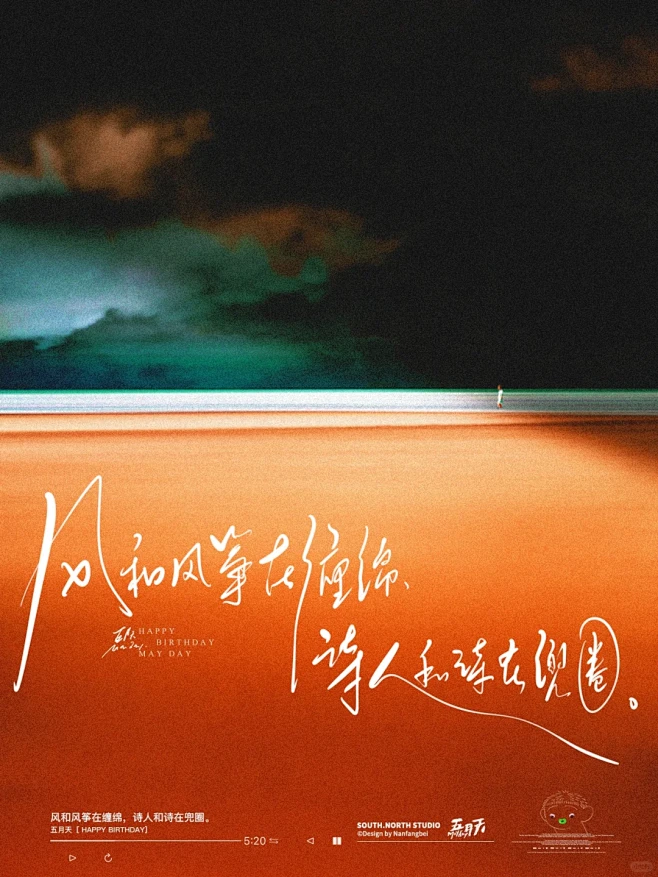 风和风筝在缠绵、
诗人和诗在兜圈。
HAPPY
BIRTHDAY
MAY DAY
风和风筝在缠绵，诗人和诗在兜圈。
五月天［ HAPPY BIRTHDAY]
5:20
SOUTH.NORTH STUDIO
©Design by Nanfangbei
五月天